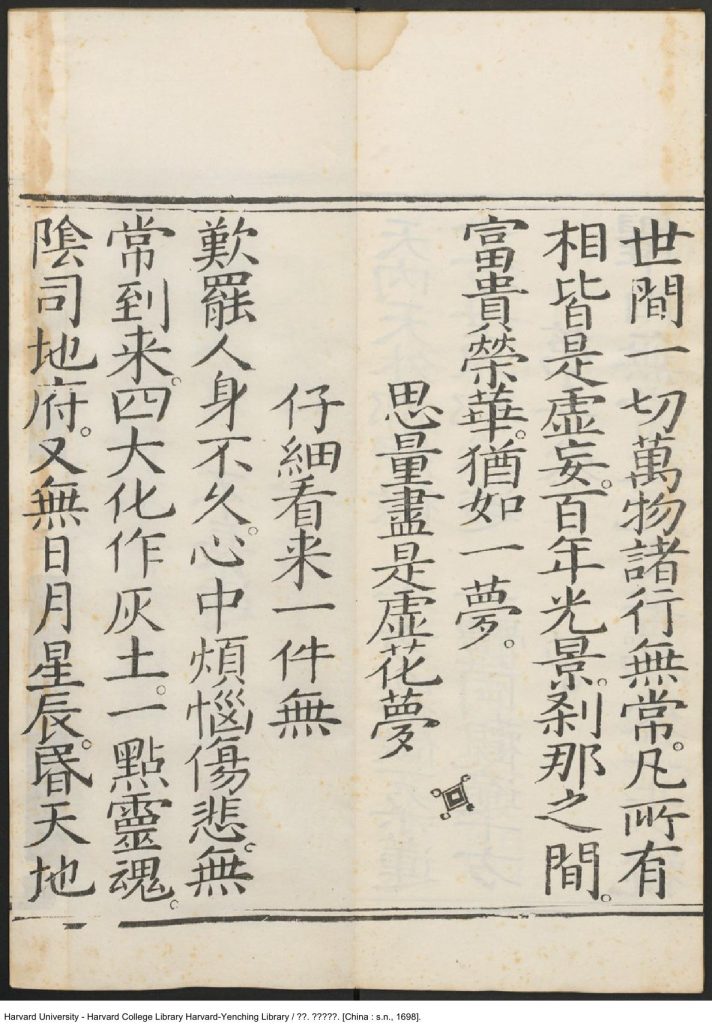 世間一切萬物諸行無常。凡所有
相皆是虛妄。百年光景。剎那之間。
富貴榮華。猶如一夢。
思量盡是虛花夢
仔細看来一件無
歎罷人身不久。心中煩惱傷悲。無
常到来。四大化作灰土。一點靈魂。
陰司地府。又無日月星辰。昬天地
Harvard University - Harvard College Library Harvard-Yenching Library / ??. ?????. [China : s.n., 1698].